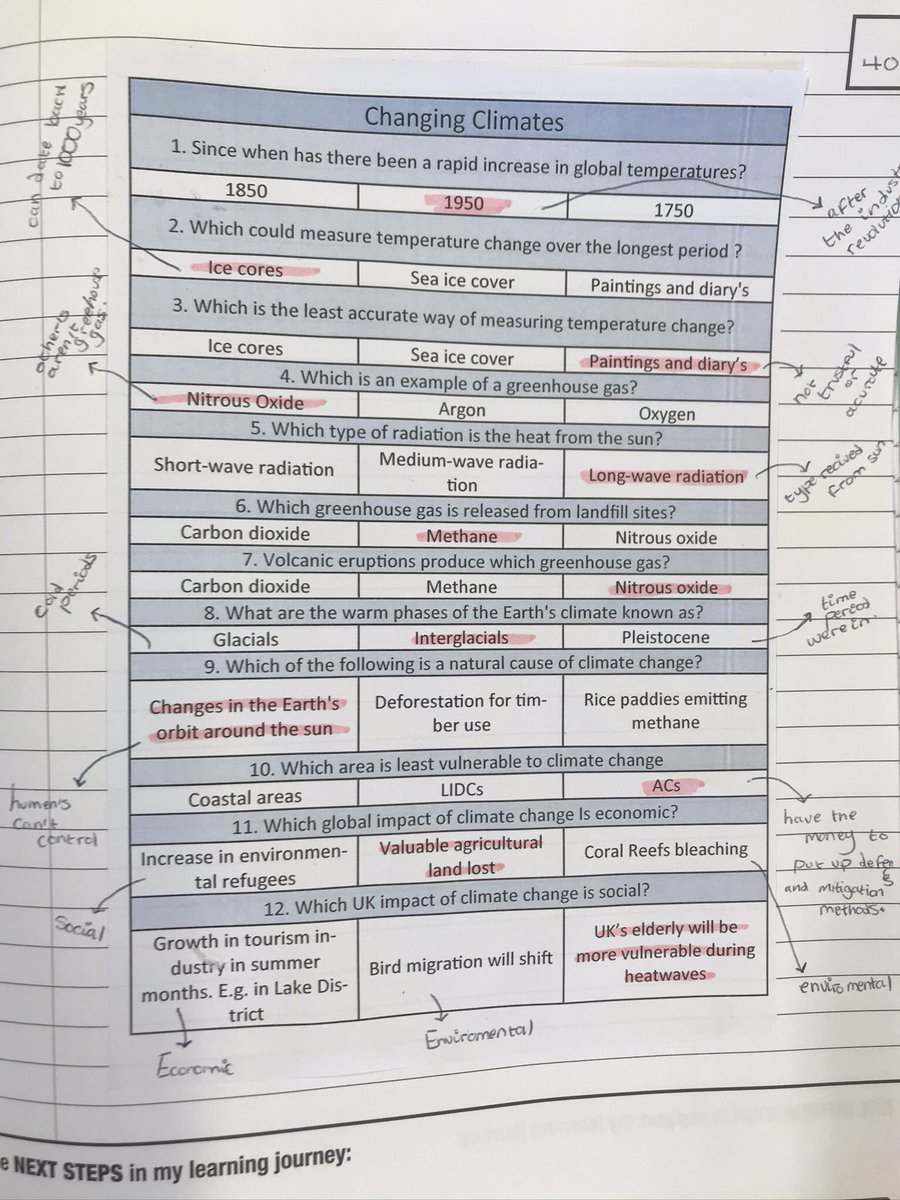 40
Changing Climates
1. Since when has there been a rapid increase in global temperatures?
1850
1950
1750
after
the indust
revolution
can date back
to 1000 years
2. Which could measure temperature change over the longest period ?
Ice cores
Sea ice cover
Paintings and diary's
3. Which is the least accurate way of measuring temperature change?
Ice cores
Sea ice cover
Paintings and diary's
not
trustful
or
acurate
others
aren't
greehouse
gas.
4. Which is an example of a greenhouse gas?
Nitrous Oxide
Argon
Oxygen
5. Which type of radiation is the heat from the sun?
Short-wave radiation
Medium-wave radia-
tion
Long-wave radiation
type recived
from sun
6. Which greenhouse gas is released from landfill sites?
Carbon dioxide
Methane
Nitrous oxide
7. Volcanic eruptions produce which greenhouse gas?
Carbon dioxide
Methane
Nitrous oxide
8. What are the warm phases of the Earth's climate known as?
Glacials
Interglacials
Pleistocene
cold
periods
time
period
were in.
9. Which of the following is a natural cause of climate change?
Changes in the Earth's
orbit around the sun
Deforestation for tim-
ber use
Rice paddies emitting
methane
humen's
can't
control
10. Which area is least vulnerable to climate change
Coastal areas
LIDCs
ACs
have the
money to
put up defen
s
and mitigation
methods.
11. Which global impact of climate change Is economic?
Increase in environmen-
tal refugees
Valuable agricultural
land lost
Coral Reefs bleaching
Social
enviromental
12. Which UK impact of climate change is social?
Growth in tourism in-
dustry in summer
months. E.g. in Lake Dis-
trict
Bird migration will shift
UK's elderly will be
more vulnerable during
heatwaves
Economic
Enviromental
e NEXT STEPS in my learning journey: